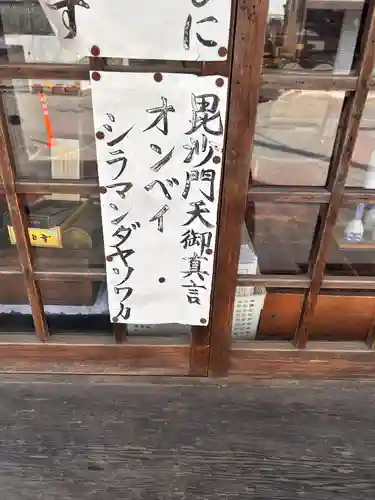 まに
す
毘沙門天御真言
オンベイ
シラマンダヤソワカ
8号